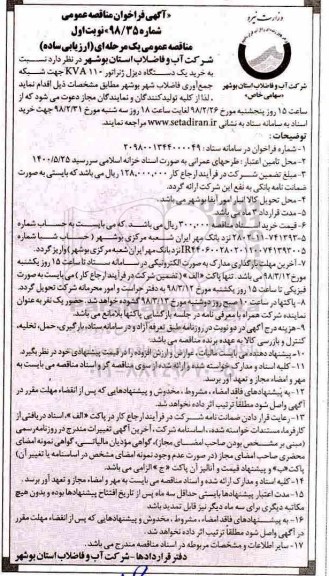 «آگهی فراخوان مناقصه عمومی
شماره ۹۸/۳۵» نوبت اول
مناقصه عمومی یک مرحله‌ای (ارزیابی ساده)
وزارت نیرو
شرکت آب و فاضلاب استان بوشهر
«سهامی خاص»
شرکت آب و فاضلاب استان بوشهر در نظر دارد نسبت
به خرید یک دستگاه دیزل ژنراتور KVA ۱۱۰ جهت شبکه
جمع‌آوری فاضلاب شهر بوشهر مطابق مشخصات ذیل اقدام نماید
. لذا از کلیه تولیدکنندگان و نمایندگان مجاز دعوت می شود که از
ساعت ۱۵ روز پنجشنبه مورخ ۹۸/۲/۲۶ لغایت ساعت ۱۸ روز سه شنبه مورخ ۹۸/۲/۳۱ جهت خرید
اسناد به سامانه ستاد به نشانی www.setadiran.ir مراجعه نمایند.
توضیحات :
۱- شماره فراخوان در سامانه ستاد: ۲۰۹۸۰۰۱۳۴۴۰۰۰۰۴۹
۲- محل تامین اعتبار: طرحهای عمرانی به صورت اسناد خزانه اسلامی سررسید ۱۴۰۰/۵/۲۵
۳- مبلغ تضمین شرکت در فرآیند ارجاع کار ۱۲۸,۰۰۰,۰۰۰ ریال می باشد که بایستی به صورت
ضمانت نامه بانکی به نفع این شرکت ارائه گردد.
۴- محل تحویل کالا انبار امور آبفا بوشهر می باشد.
۵- مدت قرارداد ۲ ماه می باشد.
۶- قیمت خرید اسناد مناقصه ۳۰۰,۰۰۰ ریال می باشد. که می بایست به حساب شماره
نزد بانک مهر ایران شعبه مرکزی بوشهر ( حساب شبا شماره
نزد بانک مهر ایران شعبه مرکزی بوشهر) واریز گردد.
۷- آخرین مهلت بارگذاری مدارک به صورت الکترونیکی در سامانه ستاد تا ساعت ۱۵ روز یکشنبه
مورخ ۹۸/۳/۱۲ می باشد. تنها پاکت «الف» (تضمین شرکت در فرآیند ارجاع کار) می بایست به صورت
فیزیکی تا ساعت ۱۵ روز یکشنبه مورخ ۹۸/۳/۱۲ به دفتر حراست و امور محرمانه شرکت تحویل گردد.
۸- پاکتها در ساعت ۱۰ صبح روز دوشنبه مورخ ۹۸/۳/۱۳ گشوده خواهد شد. حضور یک نفر به عنوان
نماینده شرکت همراه با معرفی نامه در جلسه بازگشایی پاکتها بلامانع می باشد.
۹- هزینه درج آگهی در دو نوبت در روزنامه طبق تعرفه آزاد و در سامانه ستاد، بارگیری، حمل، تخلیه،
کنترل و بازرسی کالا به عهده برنده مناقصه می باشد.
۱۰- پیشنهاد دهنده می بایست مالیات، عوارض و ارزش افزوده را در قیمت پیشنهادی خود در نظر بگیرد.
۱۱- کلیه اسناد و مدارک خواسته شده و ارائه شده از سوی مناقصه گر و اسناد مناقصه می بایست به
مهر و امضاء مجاز و تعهد آور برسد.
۱۲- به پیشنهادهای فاقد امضاء، مشروط، مخدوش و پیشنهادهایی که پس از انقضاء مهلت مقرر در
آگهی واصل شود مطلقاً ترتیب اثر داده نخواهد شد.
۱۳- رعایت قرار دادن ضمانت نامه شرکت در فرآیند ارجاع کار در پاکت «الف»، اسناد دریافتی از
کارفرما، مستندات خواسته شده، اساسنامه شرکت، آخرین آگهی تغییرات مندرج در روزنامه رسمی
(مبنی بر مشخص بودن صاحب امضای مجاز)، گواهی مؤدیان مالیاتی، گواهی نمونه امضای
محضری صاحب امضای مجاز (در صورت عدم وجود نمونه امضای مشخص در اساسنامه یا تغییر آن)
پاکت «ب» و پیشنهاد قیمت و آنالیز آن پاکت «ج» الزامی می باشد.
۱۴- کلیه اسناد و مدارک ارائه شده و اسناد مناقصه می بایست به مهر و امضاء مجاز و تعهد آور برسند .
۱۵- مدت اعتبار پیشنهادها بایستی حداقل سه ماه پس از تاریخ افتتاح پیشنهادها بوده و بدون هیچ
مکاتبه دیگری برای سه ماه دیگر نیز قابل تمدید باشد
۱۶- به پیشنهادهای فاقد امضاء ، مشروط ، مخدوش و پیشنهادهایی که پس از انقضاء مهلت مقرر
در آگهی واصل شود مطلقاً ترتیب اثر داده نخواهد شد.
۱۷- سایر اطلاعات و مشخصات مربوطه در اسناد مناقصه مندرج می باشد.
دفتر قراردادها- شرکت آب و فاضلاب استان بوشهر